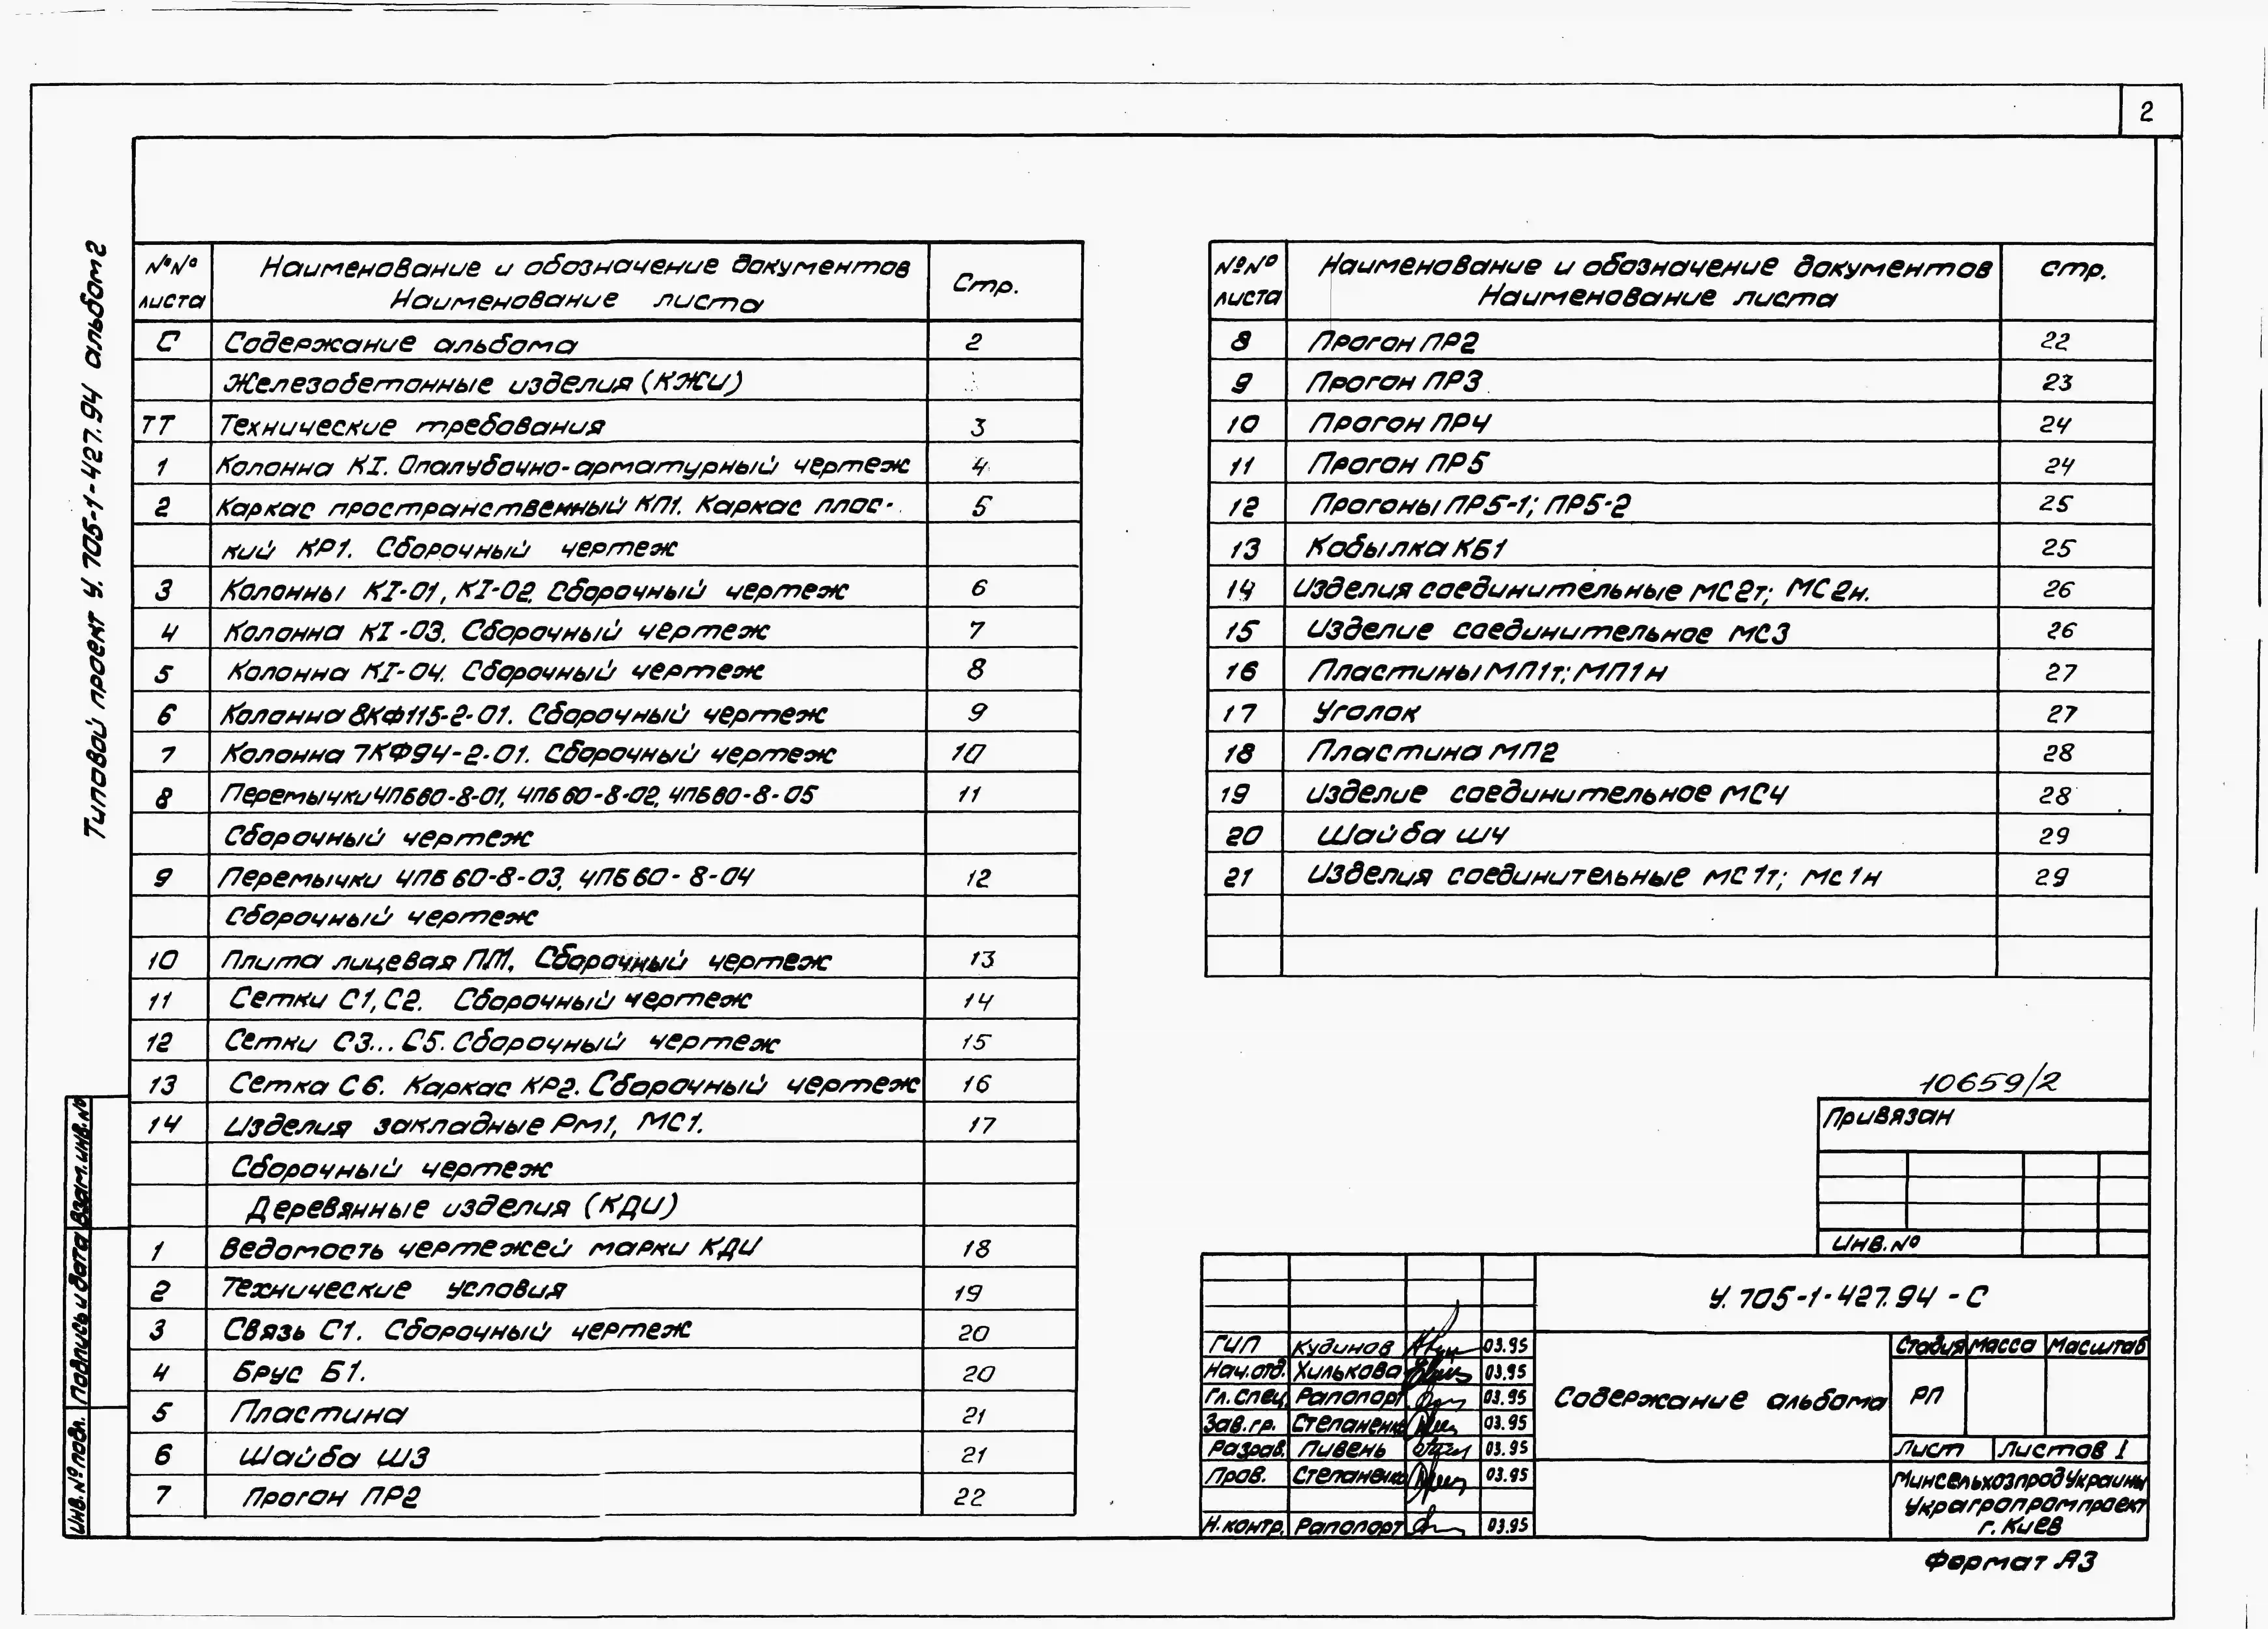 2
Типовой проект У.705-1-427.94 альбом 2
№№ листа | Наименование и обозначение документов Наименование листа | Стр.
С Содержание альбома 2
Железобетонные изделия (КЖИ)
ТТ Технические требования 3
1 Колонна КI. Опалубочно-арматурный чертеж 4
2 Каркас пространственный КП1. Каркас плос- 5
кий КР1. Сборочный чертеж
3 Колонны КI-01, КI-02. Сборочный чертеж 6
4 Колонна КI-03. Сборочный чертеж 7
5 Колонна КI-04. Сборочный чертеж 8
6 Колонна 8КФ115-2-01. Сборочный чертеж 9
7 Колонна 7КФ94-2-01. Сборочный чертеж 10
8 Перемычки 4ПБ60-8-01, 4ПБ60-8-02, 4ПБ60-8-05 11
Сборочный чертеж
9 Перемычки 4ПБ60-8-03, 4ПБ60-8-04 12
Сборочный чертеж
10 Плита лицевая ПЛ1. Сборочный чертеж 13
11 Сетки С1, С2. Сборочный чертеж 14
12 Сетки С3...С5. Сборочный чертеж 15
13 Сетка С6. Каркас КР2. Сборочный чертеж 16
14 Изделия закладные Рм1, МС1. 17
Сборочный чертеж
Деревянные изделия (КДИ)
1 Ведомость чертежей марки КДИ 18
2 Технические условия 19
3 Связь С1. Сборочный чертеж 20
4 Брус Б1. 20
5 Пластина 21
6 Шайба Ш3 21
7 Прогон ПР2 22
№№ листа | Наименование и обозначение документов Наименование листа | стр.
8 Прогон ПР2 22
9 Прогон ПР3 23
10 Прогон ПР4 24
11 Прогон ПР5 24
12 Прогоны ПР5-1; ПР5-2 25
13 Кобылка КБ1 25
14 Изделия соединительные МС2т; МС2н. 26
15 Изделие соединительное МС3 26
16 Пластины МП1т; МП1н 27
17 Уголок 27
18 Пластина МП2 28
19 Изделие соединительное МС4 28
20 Шайба Ш4 29
21 Изделия соединительные МС1т; Мс1н 29
10659/2
Привязан
Инв.№
У.705-1-427.94 - С
ГИП Кудинов 03.95
Нач.отд. Хилькова 03.95
Гл.спец. Рапопорт 03.95
Зав.гр. Степаненко 03.95
Разраб. Пивень 03.95
Пров. Степаненко 03.95
Н.контр. Рапопорт 03.95
Содержание альбома
Стадия Масса Масштаб
РП
Лист Листов 1
Минсельхозпрод Украины
Украгропромпроект
г. Киев
Формат А3
Взам.инв.№
Подпись и дата
Инв.№ подл.